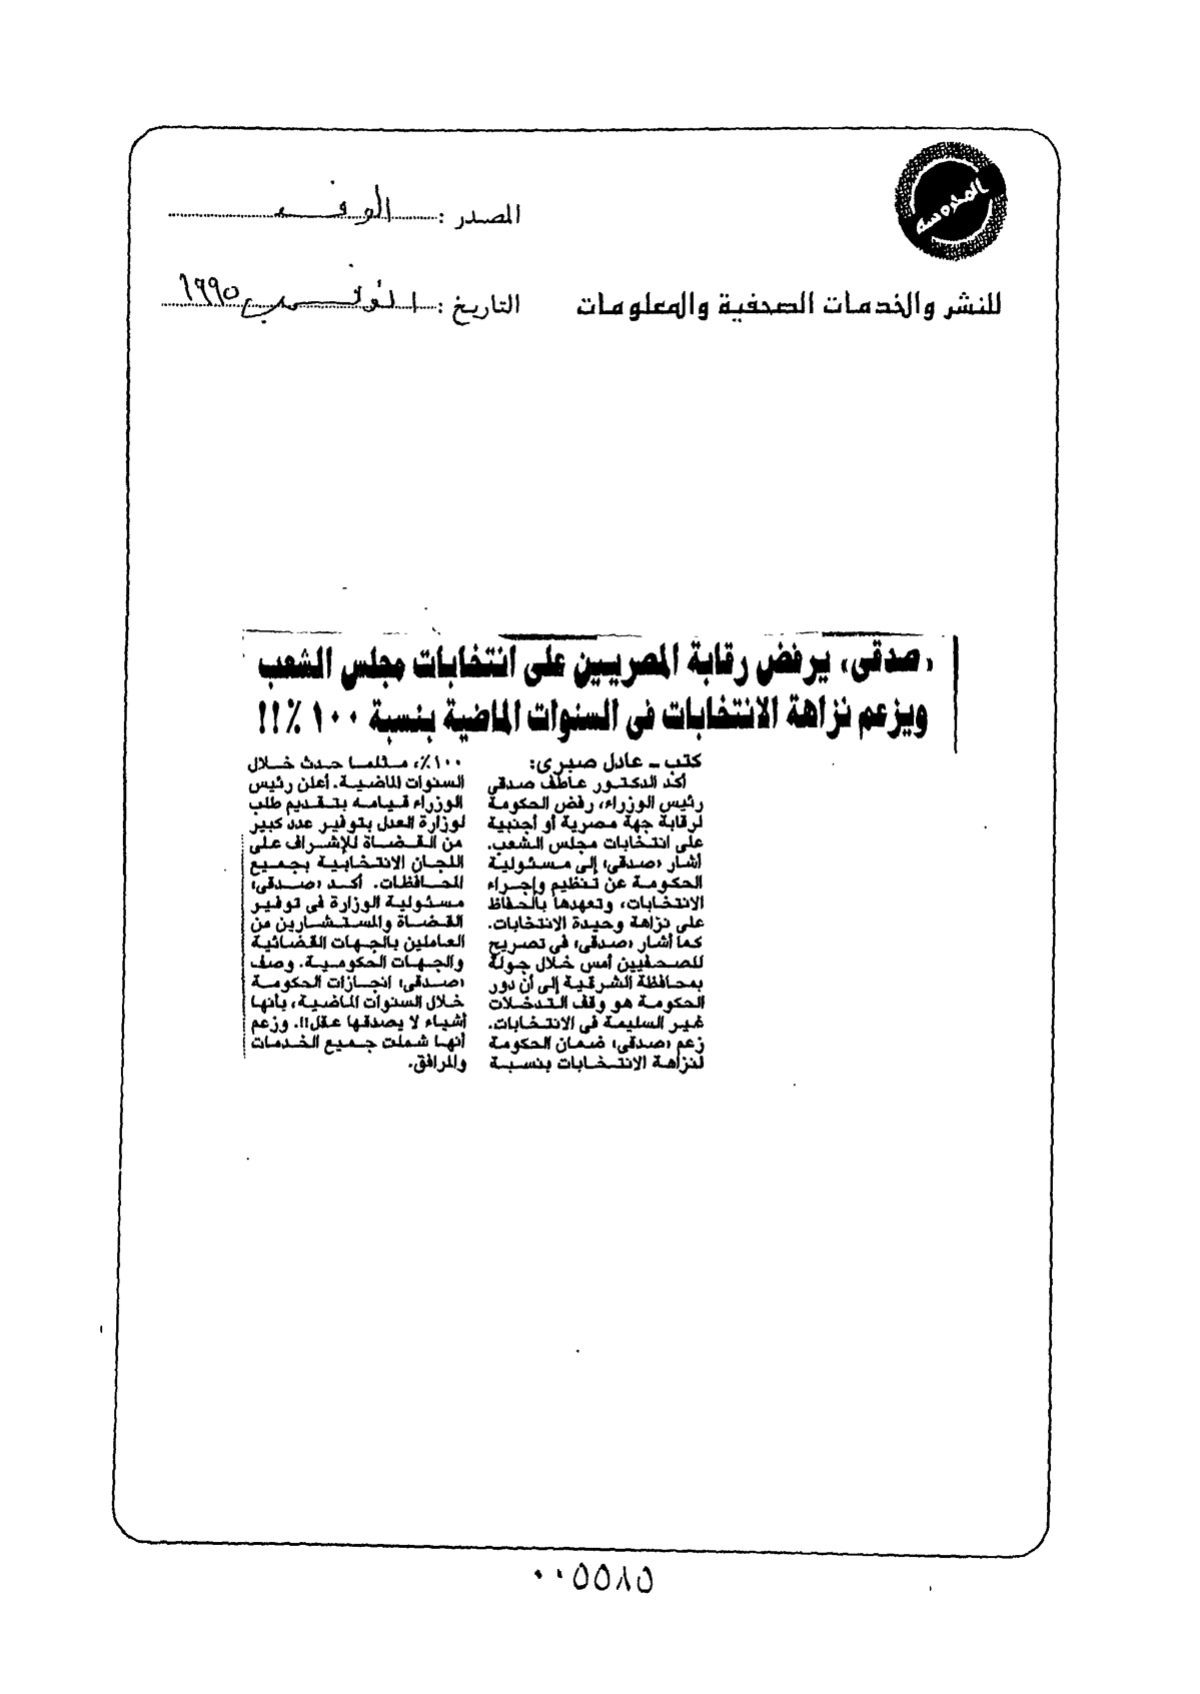 المحروسة
المصدر : الوفد
للنشر والخدمات الصحفية والمعلومات
التاريخ : ١ نوفمبر ١٩٩٥
«صدقى» يرفض رقابة المصريين على انتخابات مجلس الشعب
ويزعم نزاهة الانتخابات فى السنوات الماضية بنسبة ١٠٠٪!!
كتب ـ عادل صبرى:
أكد الدكتور عاطف صدقى
رئيس الوزراء، رفض الحكومة
لرقابة جهة مصرية أو أجنبية
على انتخابات مجلس الشعب.
أشار «صدقى» إلى مسئولية
الحكومة عن تنظيم وإجراء
الانتخابات، وتعهدها بالحفاظ
على نزاهة وحيدة الانتخابات.
كما أشار «صدقى» فى تصريح
للصحفيين أمس خلال جولة
بمحافظة الشرقية إلى أن دور
الحكومة هو وقف التدخلات
غير السليمة فى الانتخابات.
زعم «صدقى» ضمان الحكومة
لنزاهة الانتخابات بنسبة
١٠٠٪، مثلما حدث خلال
السنوات الماضية. أعلن رئيس
الوزراء قيامه بتقديم طلب
لوزارة العدل بتوفير عدد كبير
من القضاة للإشراف على
اللجان الانتخابية بجميع
المحافظات. أكد «صدقى»
مسئولية الوزارة فى توفير
القضاة والمستشارين من
العاملين بالجهات القضائية
والجهات الحكومية. وصف
«صدقى» انجازات الحكومة
خلال السنوات الماضية، بأنها
أشياء لا يصدقها عقل!!. وزعم
أنها شملت جميع الخدمات
والمرافق.
٠٠٥٥٨٥